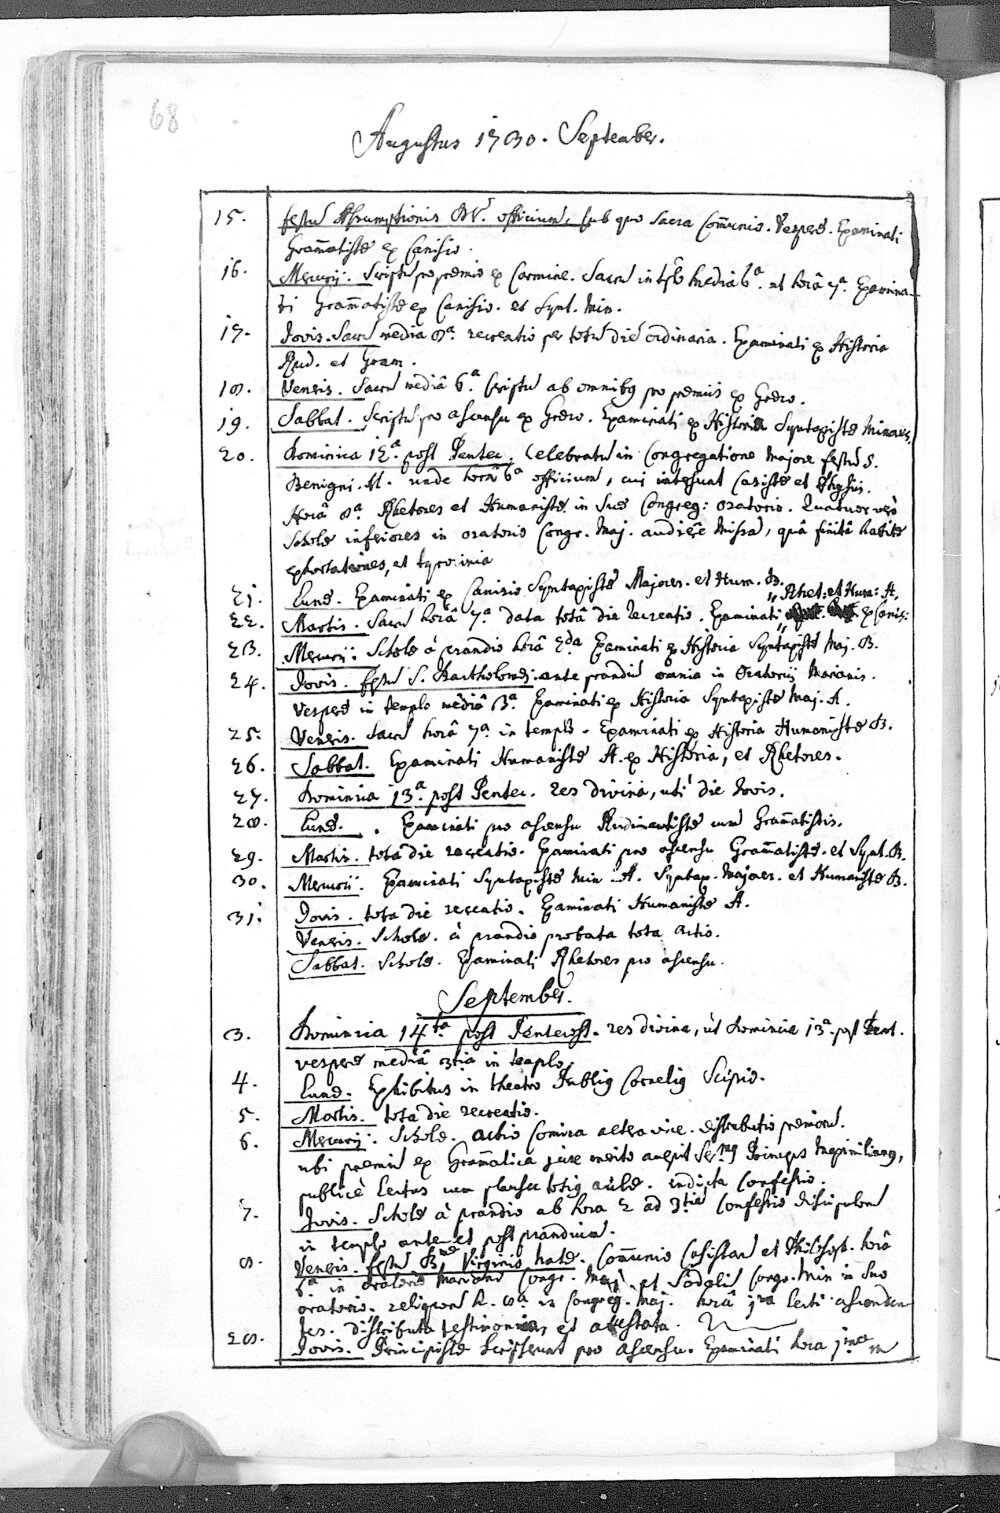 68
Augustus 1730. September.
15. festū Assumptionis BV. officium, sub quo sacra Com̄unio. Vesperæ. Examinati
Gram̄atistæ ex Canisio.
16. Mercurij. Scriptū pro præmio ex Carmine. Sacrū in tēplo media 6ª. et horâ 7ª. Examina-
ti Gram̄atistæ ex Canisio. et Synt. Min.
17. Jovis. Sacrū media 8ª. recreatio per totū diē ordinaria. Examinati ex Historia
Rud. et Gram.
18. Veneris. Sacrū mediâ 6ª. Scriptū ab omnibus pro præmiis ex Græco.
19. Sabbat. Scriptū pro ascensu ex Græco. Examinati ex Historia Syntaxistæ Minores,
20. Dominica 12ª post Pentec. Celebratū in Congregatione Majore festū S.
Benigni. M. unde horâ 6ª officium, cui intersunt Casistæ et Physici.
Horâ 8ª. Rhetores et Humanistæ in suæ Congreg: oratorio. Quatuor verò
Scholæ inferiores in oratorio Congr. Maj. audiēre Missā, quâ finitâ habitæ
exhortationes, et tyrocinia
21. Lunæ. Examinati ex Canisio Syntaxistæ Majores. et Hum. B.
Rhet: et Hum: A.
22. Martis. Sacrū horâ 7ª. data totâ die recreatio. Examinati ex Canis:
23. Mercurij. Scholæ à prandio horâ 2dâ Examinati ex Historia Syntaxistæ Maj. B.
24. Jovis. festū S. Bartholomæi. ante prandiū omnia in Oratorij Marianis.
Vesperæ in templo mediâ 3ª. Examinati ex Historia Syntaxistæ Maj. A.
25. Veneris. Sacrū horâ 7ª. in templo. Examinati ex Historia Humanistæ B.
26. Sabbat. Examinati Humanistæ A. ex Historia, et Rhetores.
27. Dominica 13ª. post Pentec. res divina, uti die Jovis.
28. Lunæ. Examinati pro ascensu Rudimentistæ cum Gram̄atistis.
29. Martis. totâ die recreatio. Examinati pro ascensu Gram̄atistæ. et Synt. B.
30. Mercurii. Examinati Syntaxistæ Min: A. Syntax. Majores. et Humanistæ B.
31. Jovis. tota die recreatio. Examinati Humanistæ A.
Veneris. Scholæ. à prandio probata tota Actio.
Sabbat. Scholæ. Examinati Rhetores pro ascensu.
September.
3. Dominica 14ta post Pentecost. res divina, ut Dominica 13ª. post Pent.
vesperæ mediâ 3tia in templo.
4. Lunæ. Exhibitus in theatro Publius Cornelius Scipio.
5. Martis. tota die recreatio.
6. Mercurij. Scholæ. actio Comica altera vice. distributio præmiorū.
ubi præmiū ex Gram̄atica jure merito accepit Sermus Princeps Maximilianus,
publicè Lectus cum plausu totius aulæ. indicta Confessio.
7. Jovis. Scholæ à prandio ab hora 2 ad 3tiā Confessio discipulorū
in templo ante et post prandium.
8. Veneris. festū Bmæ Virginis natæ. Com̄unio Casistarū et Philosoph. horâ
6ª in oratorio Mariano Congr. Maj. et Sodaliū Congr. Min in suo
oratorio. reliquorū h. 8ª. in Congreg. Maj. horâ 1ma lecti ascenden-
tes. distributa testimonia et attestata.
28. Jovis. Principistæ scripserunt pro ascensu. Examinati hora 1ma